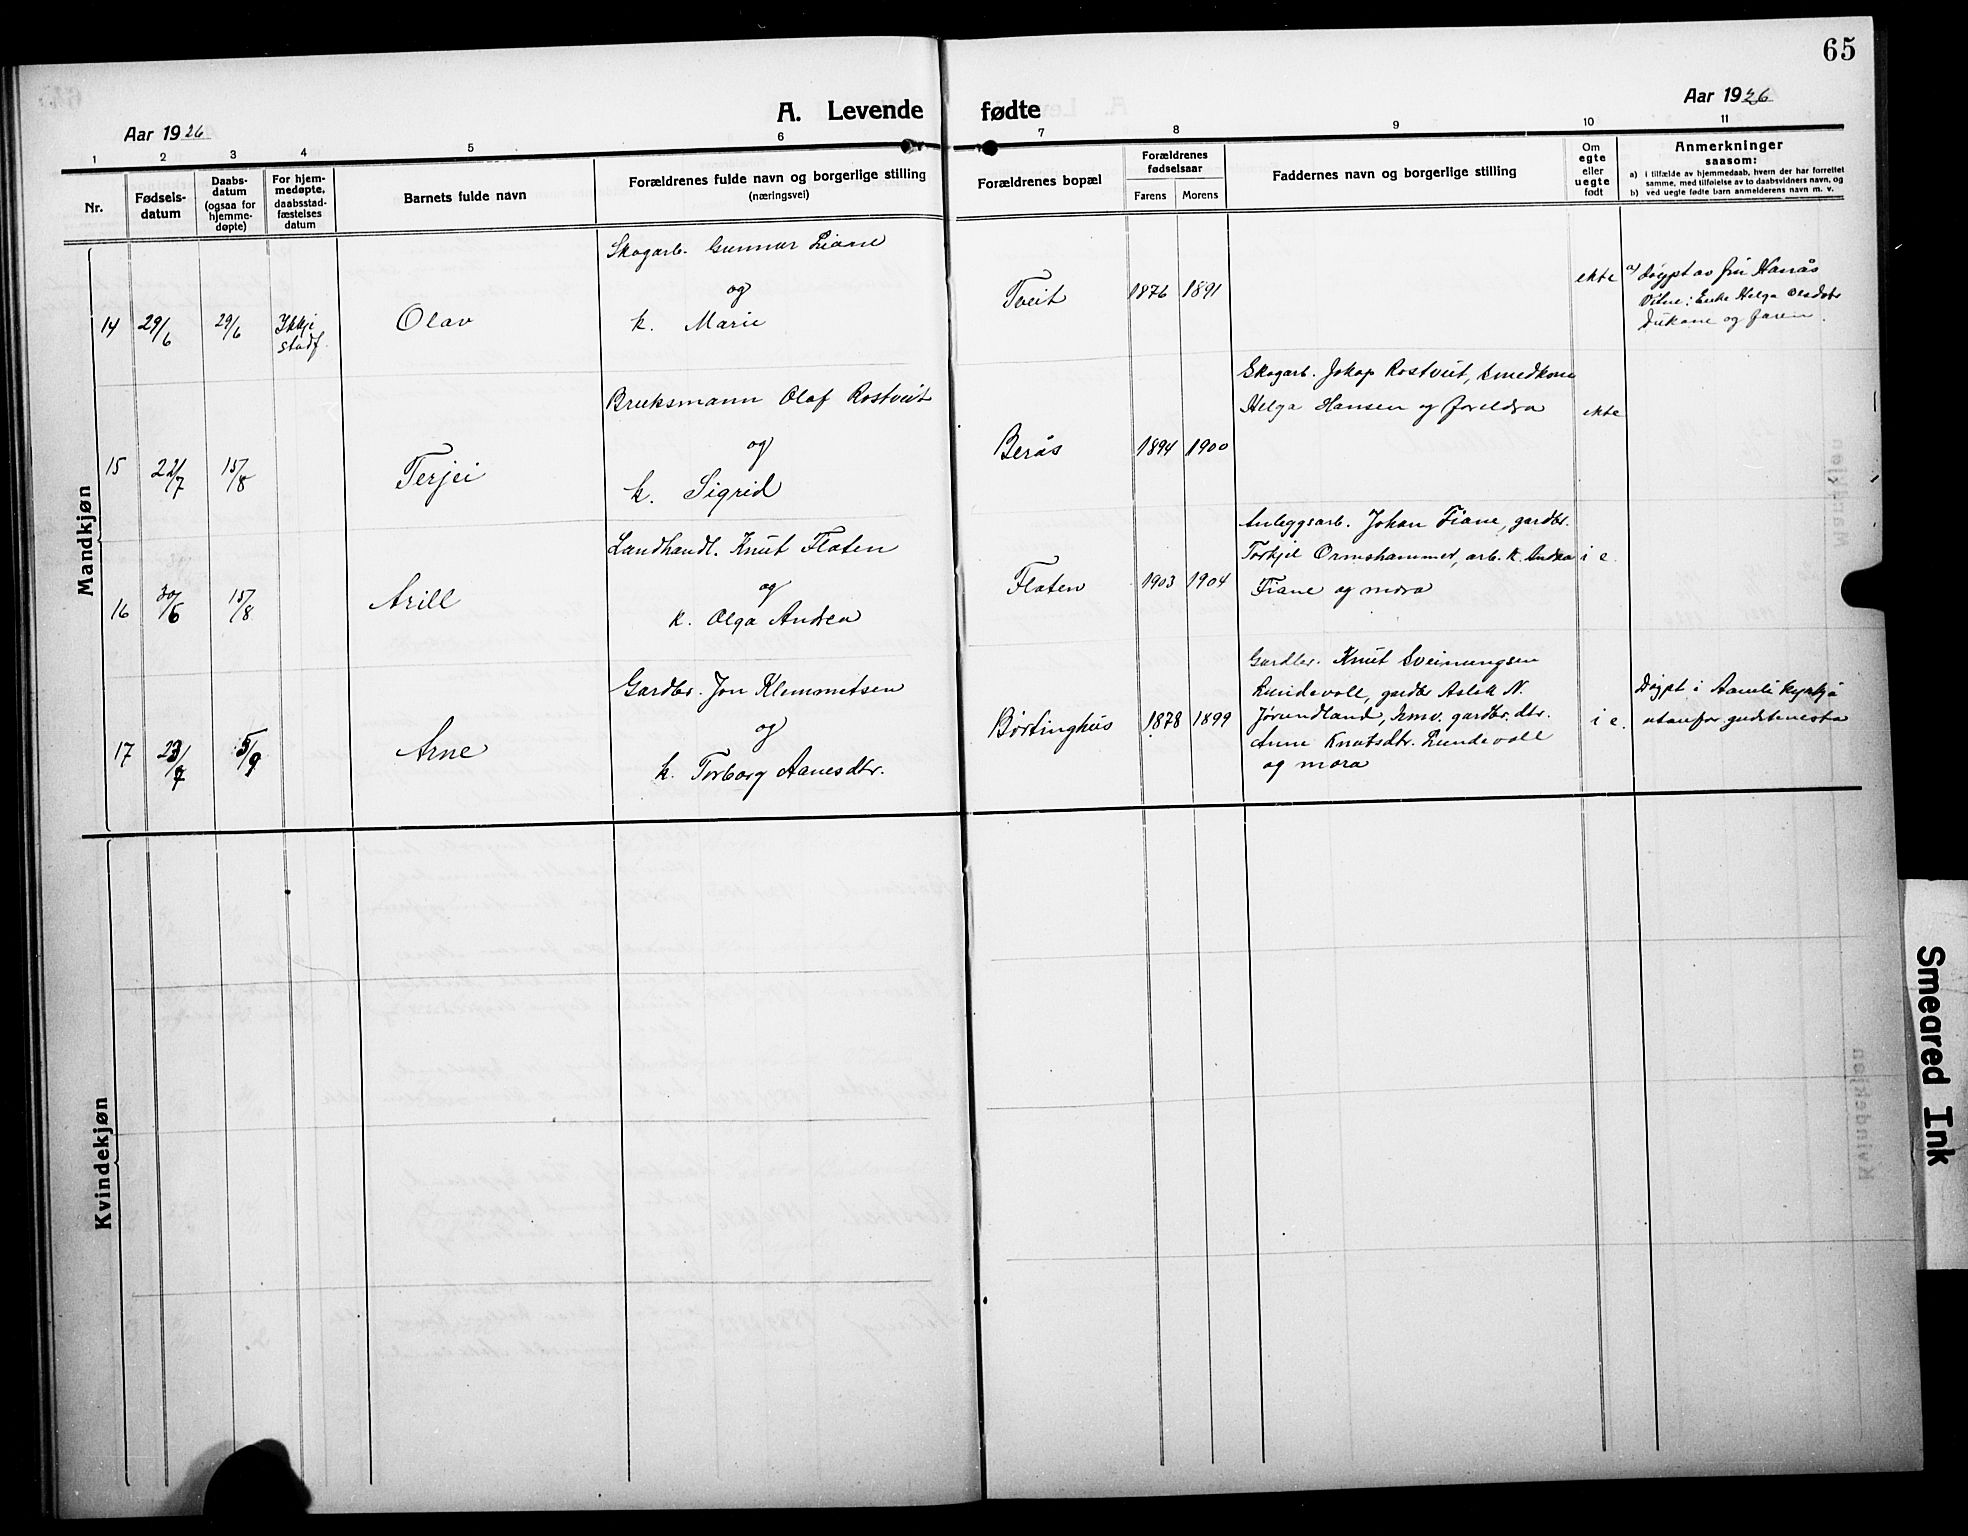 65
A. Levende fødte
Aar 1926
Aar 1926
1 2 3 4 5 6 7 8 9 10 11
Nr.
Fødsels-
datum
Daabs-
datum
(ogsaa for
hjemme-
døpte)
For hjem-
medøpte,
daabsstad-
fæstelses
datum
Barnets fulde navn
Forældrenes fulde navn og borgerlige stilling
(næringsvei)
Forældrenes bopæl
Forældrenes
fødselsaar
Farens Morens
Faddernes navn og borgerlige stilling
Om
egte
eller
uegte
født
Anmerkninger
saasom:
a) i tilfælde av hjemmedaab, hvem der har forrettet
samme, med tilføielse av to daabsvidners navn, og
b) ved uegte fødte barn anmelderens navn m. v.
Mandkjøn
14 29/6 29/6 Ikkje
stadf.
Olav
Skogarb. Gunnar Liane
og
k. Marie
Tveit 1876 1891
ekte
a) Døypt av fru Hanås
Vitne: Enke Helga Olsdotr
Dukane og faren.
15 22/7 15/8
Terjei
Bruksmann Olaf Rostveit
og
k. Sigrid
Berås 1894 1900
Skogarb. Jokop Rostveit, smedkona
Helga Hansen og foreldra
ekte
16 30/6 15/8
Arill
Landhandl. Knut Flaten
og
k. Olga Andrea
Flaten 1903 1904
Anleggsarb. Johan Fiane, gardbr.
Torkjel Ormshammer, arb. k. Andrea
Fiane og mora
i e.
17 23/7 5/9
Arne
Gardbr. Jon Klemmetsen
og
k. Torborg Aanesdtr.
Børtinghus 1878 1899
Gardbr. Knut Sveinungsen
Lundevoll, gardbr Aslek N.
Jørundland, hmv. gardbr. dtr.
Anne Knutsdtr. Lundevoll
og mora
i e.
Døypt i Aamli kyrkja
utanfor gudstenesta
Kvindekjøn
Smeared Ink